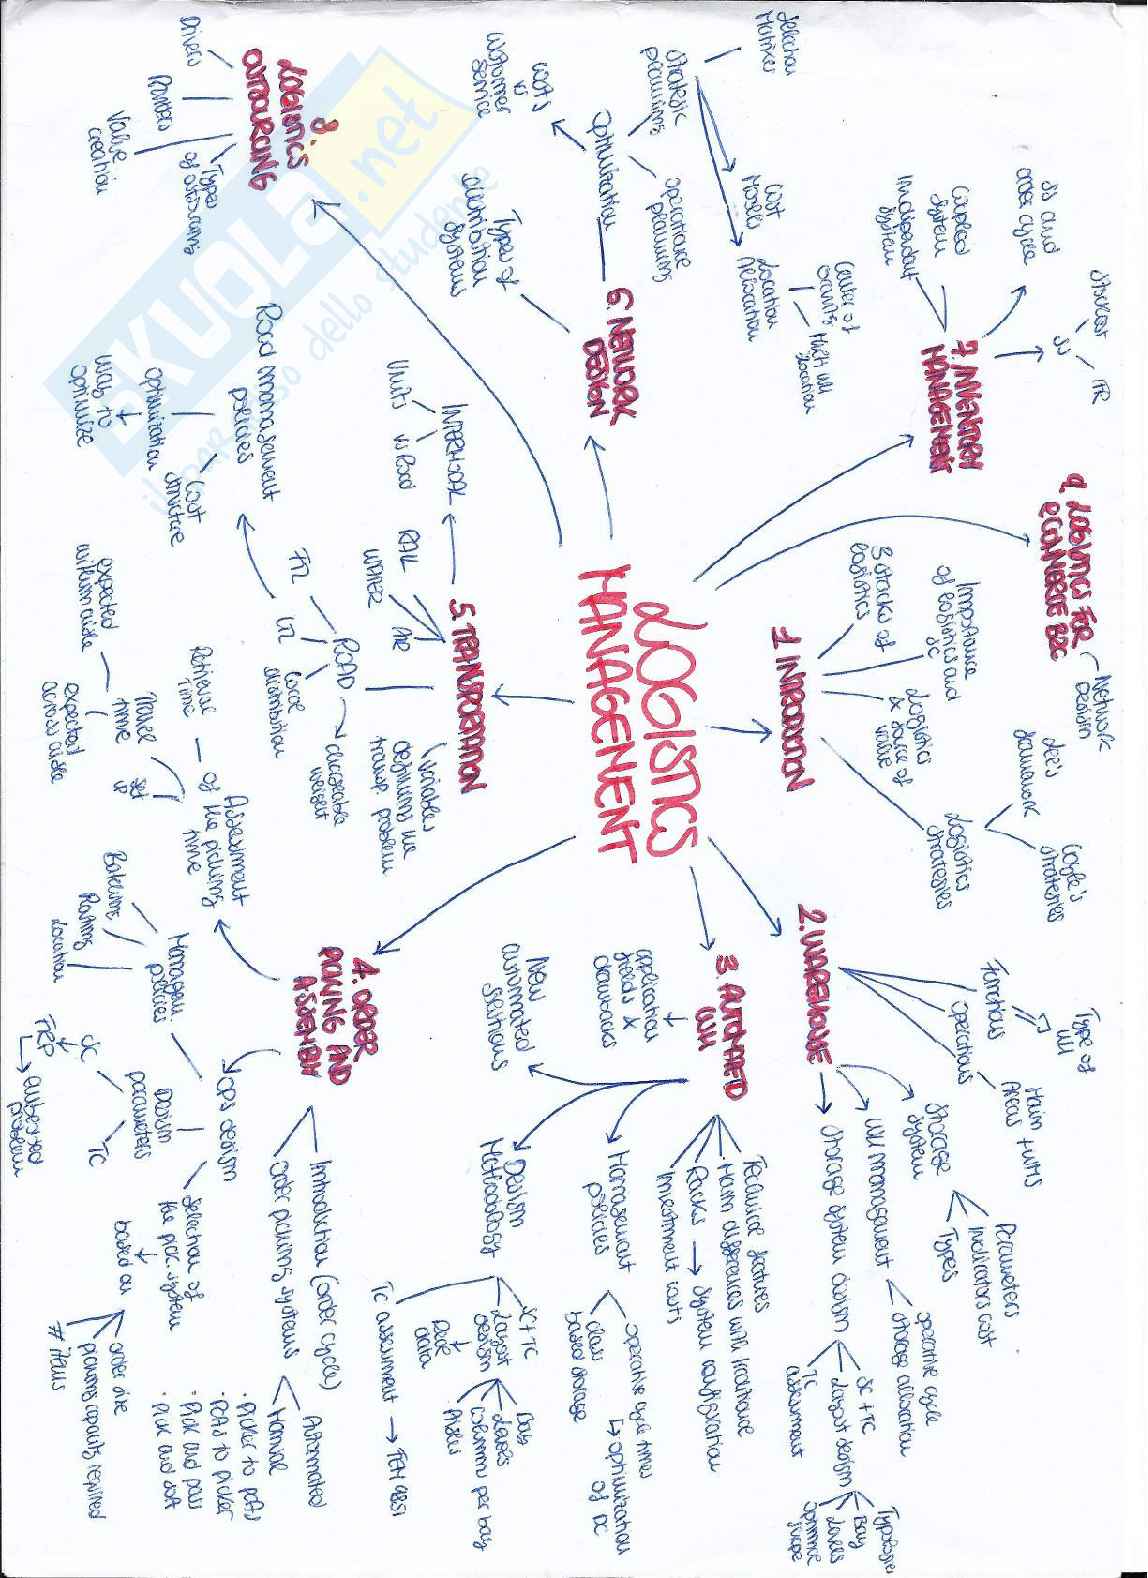 LOGISTICS
MANAGEMENT
1. INTRODUCTION
3 attacks of
logistics
Importance
of logistics and
SC
Logistics
& source of
value
Logistics
strategies
Lee's
framework
Coyle's
strategies
2. WAREHOUSE
Functions
Type of
WH
operations
Main
Areas
+ WMS
Storage
system
Parameters
Indicators cost
Types
WH management
operative cycle
storage allocation
Storage system design
SC + TC
Layout design
TC
assessment
Typologies
Bay
Levels
Optimal
shape
3. AUTOMATED
WH
application
fields &
drawbacks
New
automated
solutions
Technical features
Main differences with traditional
Racks → System configuration
Investment costs
Management
policies
operative cycle times
↳ optimization
of DC
class
based storage
Design
Methodology
SC + TC
Layout
design
Real
data
Bays
Levels
columns per bay
Aisles
TC assessment → FEM 9851
4. ORDER
PICKING AND
ASSEMBLY
Introduction (order cycle)
order picking systems
Automated
Manual
· Picker to parts
· Parts to picker
· Pick and pass
· Pick and sort
OPS design
Managem.
policies
Batching
Routing
Location
Design
parameters
SC
TC
FRP
↳ embedded
problem
Selection of
the pick. system
based on
order size
picking capacity required
# items
Assessment
of the picking
time
Retrieval
time
Travel
time
Set
up
expected
within aisle
expected
across aisle
5. TRANSPORTATION
INTERMODAL
Units
vs Road
RAIL
WATER
AIR
ROAD
FTL
LTL
Local
distribution
chargeable
weight
Variables
defining the
transp. problem
Road management
policies
optimization
way to
optimize
Cost
structure
6. NETWORK
DESIGN
Optimization
Costs
vs
customer
service
Types of
distribution
systems
Strategic
planning
operative
planning
Selection
Matrixes
Cost
Models
Location
Allocation
Center of
Gravity
Multi WH
location
7. INVENTORY
MANAGEMENT
Coupled
system
Independent
system
SS and
order cycle
SS
stockout
FR
8.
LOGISTICS
OUTSOURCING
Drivers
Players
Types
of outsourcing
Value
creation
9. LOGISTICS FOR
ECOMMERCE B2C
Network
Design
SKUOLA.net
il paradiso dello studente